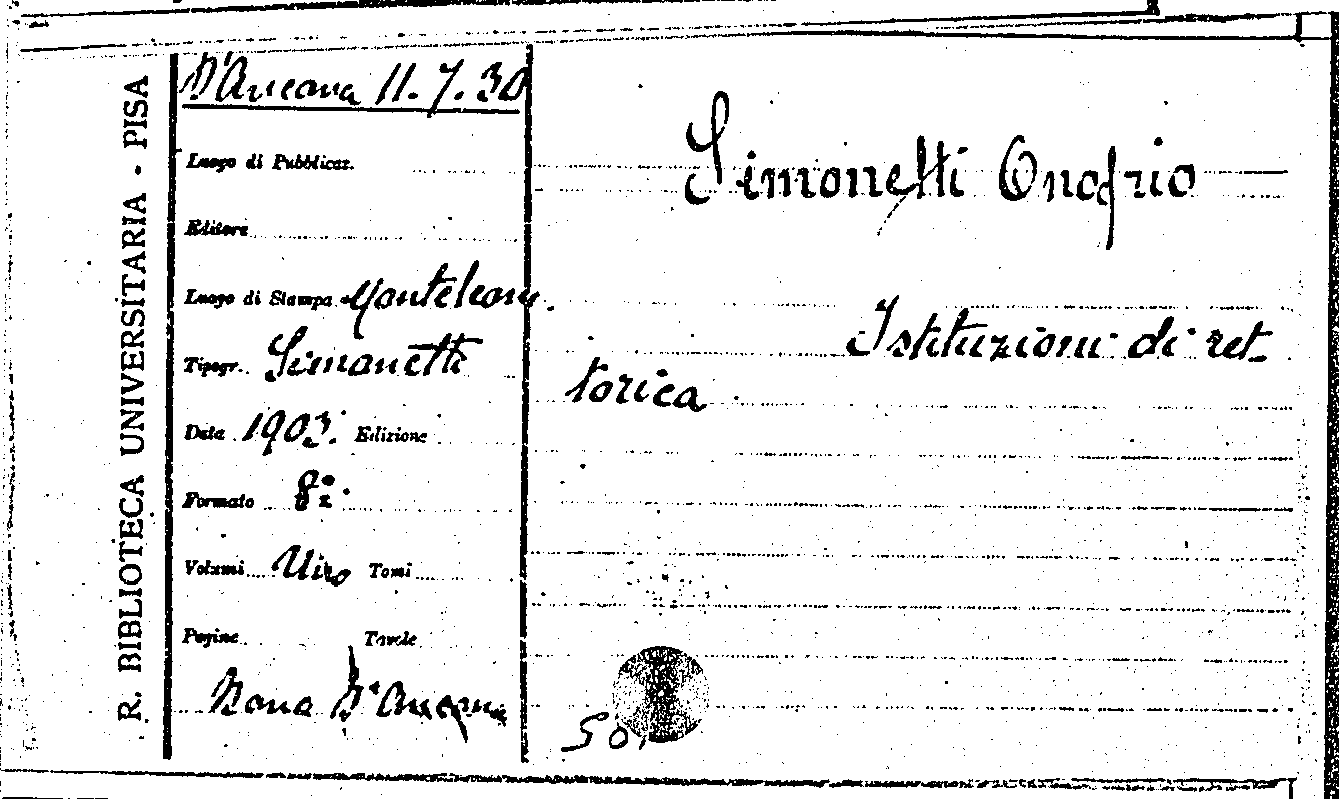 R. BIBLIOTECA UNIVERSITARIA - PISA
D'Ancona 11. 7. 30
Luogo di Pubblicaz.
Editore
Luogo di Stampa Monteleone.
Tipogr. Simonetti
Data 1903. Edizione
Formato 8°.
Volumi Uno Tomi
Pagine Tavole
Dono D'Ancona
Simonetti Onofrio
Istituzioni di ret-
torica